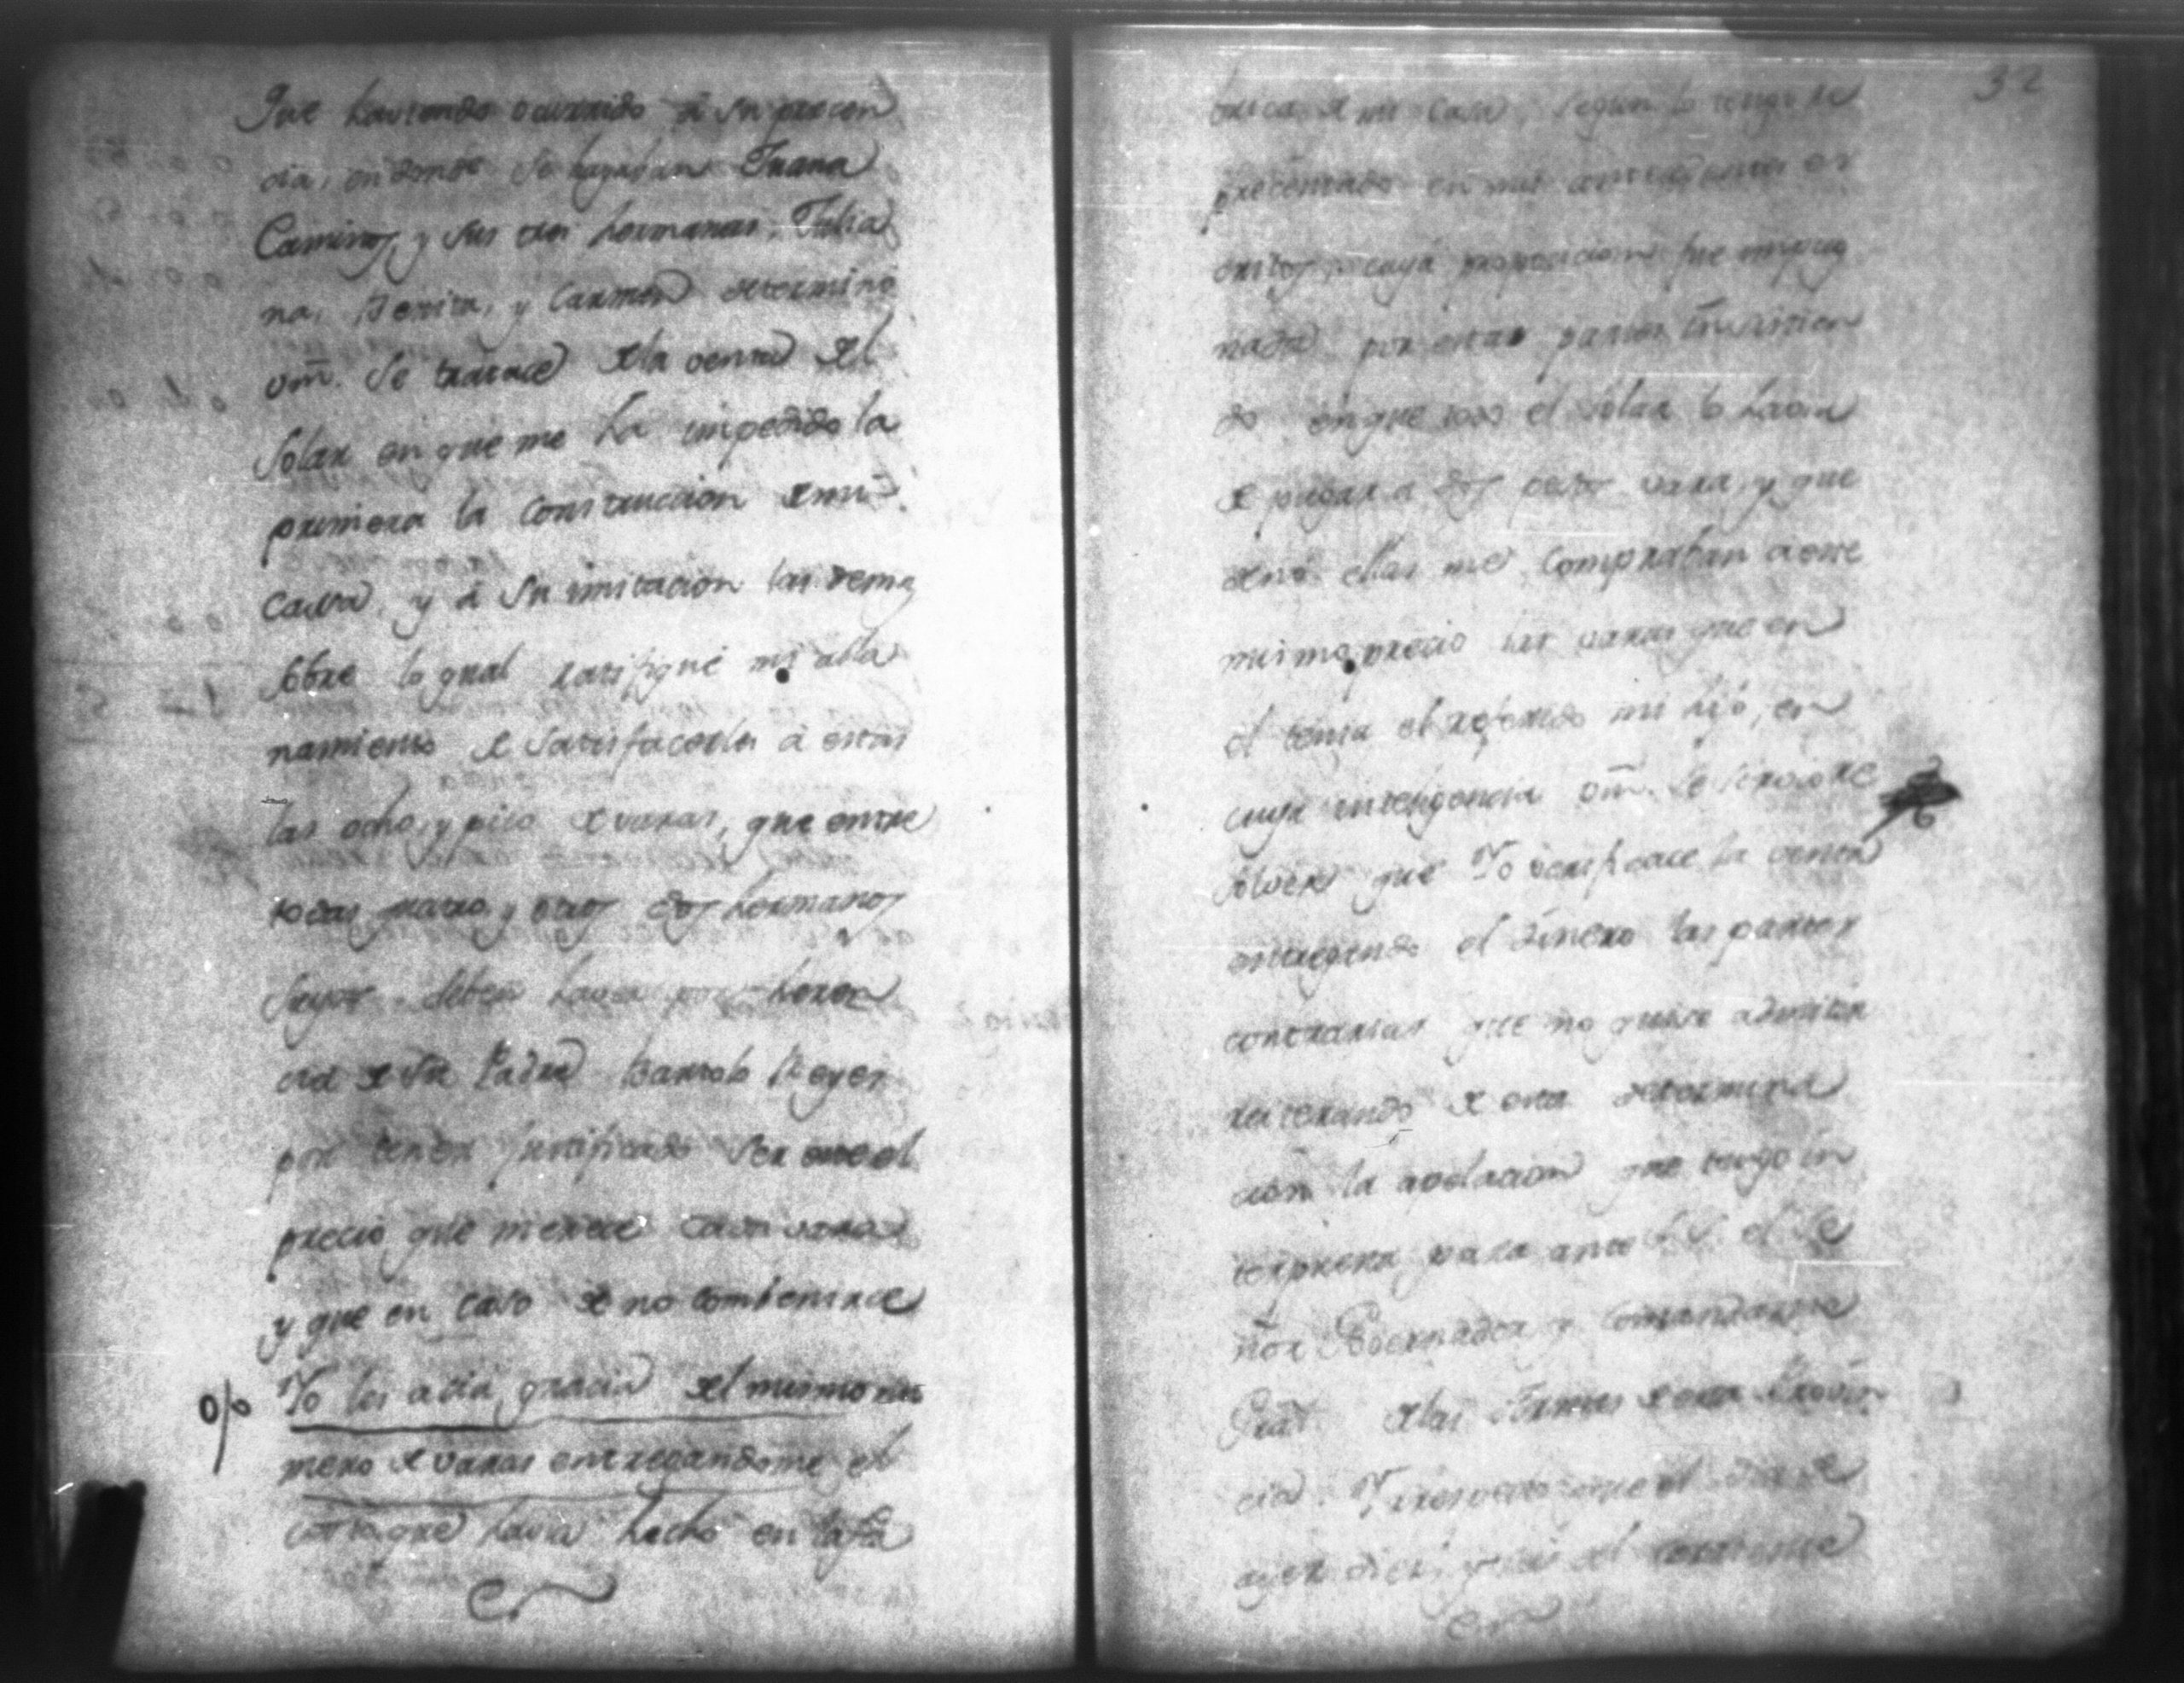 Que haviendo ocurrido á su precen
cia, en donde se hayaban Juana
Caminos, y sus tres hermanas, Julia
na, Benita, y Carmen determino
vm̃. se tratace dela venta del
Solar en que me ha impedido la
primera la construccion de mi
Cauza, y á su imitacion las demas
sobre lo qual ratifiqué mi alla
namiento de satisfacerles á estas
las ocho, y pico de varas, que entre
todas quatro, y otros dos hermanos
suyos deben haver por heren
cia de su Padre Bartolo Reyes
por tener justificado ser este el
precio que merece cada vara
y que en caso de no combenirce
Yo les acia gracia del mismo nu
mero de varas entregandome el
costo que havia hecho en la fa
32
brica de mi casa, segun lo tengo re
precentado en mis antecedentes es
critos, cuya proposicion fue impug
nada por estas partes insistien
do en que todo el solar lo havia
de pagar a dos pesos vara, y que
sinó ellas me compraban a este
mismo precio las varas que en
el tenia el referido mi hijo, en
cuya inteligencia vm̃. se sirvió re
solver que Yo verificace la venta
entregando el dinero las partes
contrarias que no quise admitir
reiterando de esta determina
cion la apelacion que tengo in
terpuesta para ante el Se
ñor Governador y Comandante
Gral delas Armas de esta Provin
cia. Y respecto que el dia de
ayer diez y seis del corriente